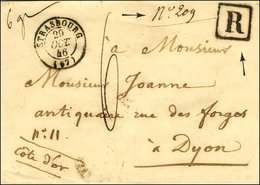 6 gr
N° 209
R
STRASBOURG
29
OCT.
46
(67)
à Monsieur
Monsieur Joanne
antiquaire rue des forges
n° 11
à Dyon
Côte d'or